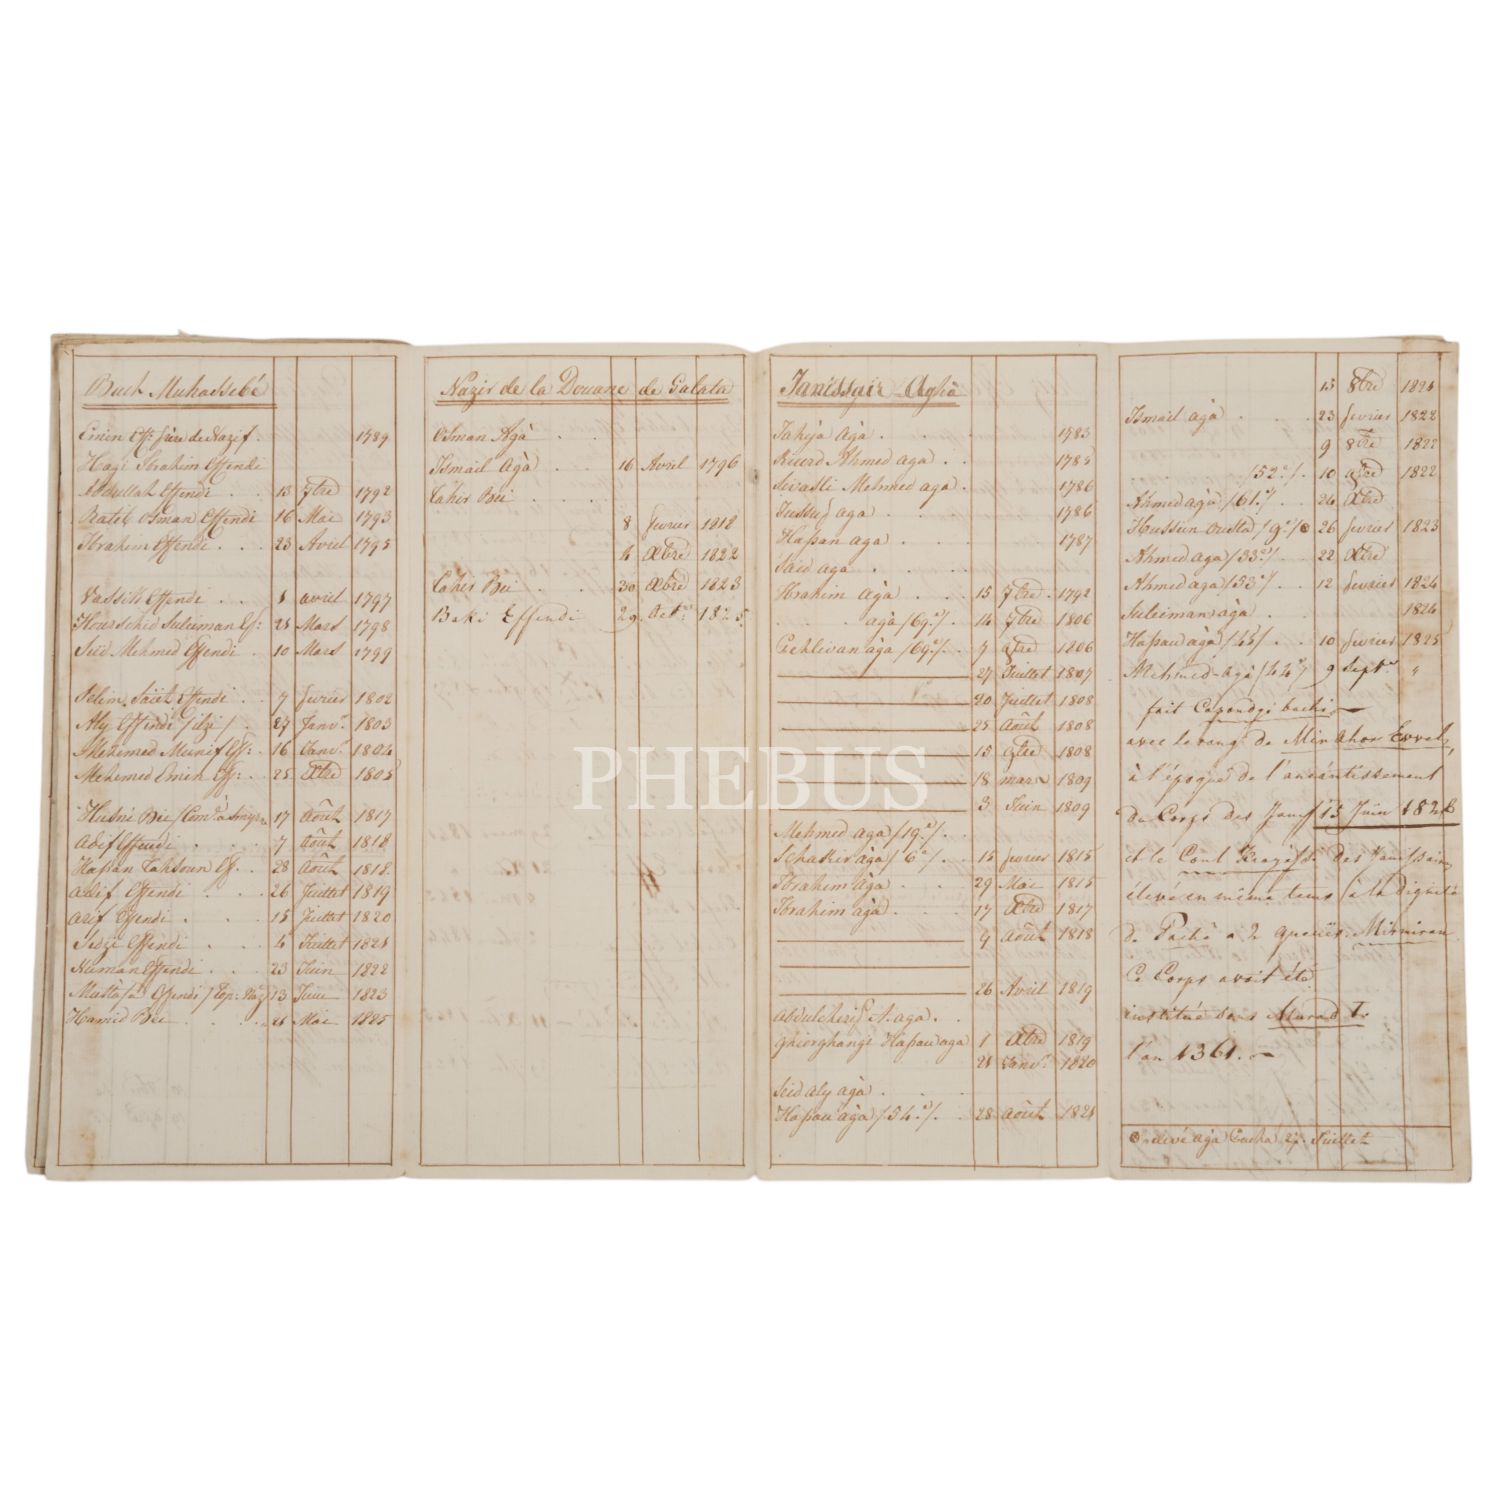 Bach Muhassebé
Emin Eff: frère de Nazif. 1789
Hagi Ibrahim Effendi
Abdullah Effendi . . 13 7bre 1792
Ratib Osman Effendi 16 Mai 1793
Ibrahim Effendi . . . 23 Avril 1795
Vassif Effendi . . . 1 avril 1797
Kourschid Suleiman Ef: 21 Mars 1798
Seid Mehmed Effendi . 10 Mars 1799
Selim Saiet Effendi . 7 fevrier 1802
Aly Effendi /ilzi/ . 27 Janv.r 1803
Mehemed Munif Ef: . 16 Janv.r 1804
Mehemed Emin Eff: . 25 Xbre 1805
Husni Bei /Com: à Smyrn 17 Août 1817
Adif Effendi . . 7 Août 1818
Hassan Tahsoun Ef. . 28 Août 1818
Adif Effendi . . . 26 Juillet 1819
Arif Effendi . . . 15 Juillet 1820
Sidzi Effendi . . . 4 Juillet 1821
Numan Effendi . . . 23 Juin 1822
Mustafa Effendi /Top: Naz 13 Juin 1823
Hamid Bei . . . . 21 Mai 1825
Nazir de la Douane de Galata
Osman Agà . .
Ismail Agà . . 16 Avril 1796
Tahir Bei . .
8 fevrier 1818
4 Xbre 1822
Tahir Bei . . 30 Xbre 1823
Baki Effendi 29 Oct.r 1825
Janissair Aghà
Jahja Aga . . . 1783
Kiurd Ahmed aga . . 1785
Sivasli Mehmed aga . 1786
Jussuf aga . . . 1786
Hassan aga . . . 1787
Said aga . . . .
Ibrahim Aga . . . 15 7bre . 1792
. . . . agà /69.e/ . 14 7bre 1806
Pehlivan aga /69.e/ . . 7 9bre 1806
27 Juillet 1807
20 Juillet 1808
25 Août 1808
15 9bre 1808
PHEBUS
18 mars 1809
3 Juin 1809
Mehmed aga /19.e/ .
Schakir aga /6.e/ . . 15 fevrier 1815
Ibrahim Aga . . . 29 Mai 1815
Ibrahim aga . . . 17 Xbre 1817
4 Août 1818
26 Avril 1819
aga . .
Hassan aga 1 Xbre 1819
21 Janv.r 1820
Seid aly aga . . . .
Hassan aga /54.e/ . . 28 août 1821
13 8bre 1821
Ismail aga . . . . 23 fevrier 1822
9 8bre 1822
. . . . . /52.e/ . 10 9bre 1822
Ahmed aga /61.e/ . . 26 Xbre
Hussein Ousta /9.e/ 26 fevrier 1823
Ahmed aga /33.e/ . . 22 Xbre
Ahmed aga /53.e/ . . 12 fevrier 1824
Suleiman aga . . . 1824
Hassan aga /45/ . . 10 fevrier 1825
Mehmed-Agà /44.e/ 9 Sept.r "
fait Capoudgi bachi
avec le rang de Mirahor Evvel,
à l'époque de l'anéantissement
du Corps des Janiss 15 Juin 1826
et le Coul des Janissair
élevé en même tems à la dignité
de Pachà a 2 queües. Mirmiran
Ce Corps avoit été
institué sous Murad I.
l'an 1361.
élevé Aga Pacha 27 Juillet